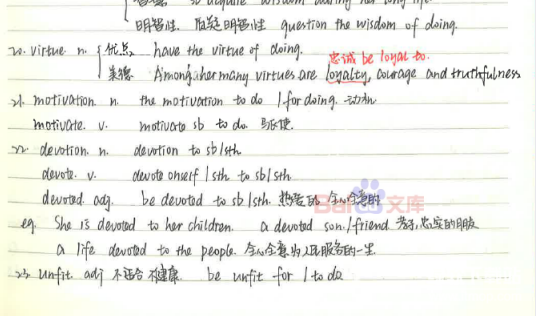 so acquire wisdom during her long life.
明智性. 质疑明智性 question the wisdom of doing.
20. virtue n. { 优点 have the virtue of doing.
忠诚 be loyal to.
美德 Among her many virtues are loyalty, courage and truthfulness
21. motivation n. the motivation to do / for doing. 动机
motivate. v. motivate sb to do. 驱使.
22. devotion. n. devotion to sb/sth
devote. v. devote onself / sth to sb/sth
devoted adj. be devoted to sb/sth. 热爱的 全心全意的
eg. She is devoted to her children. a devoted son / friend 孝子, 忠实的朋友
a life devoted to the people. 全心全意为人民服务的一生
23. unfit. adj 不适合 不健康 be unfit for / to do
Bai 文库